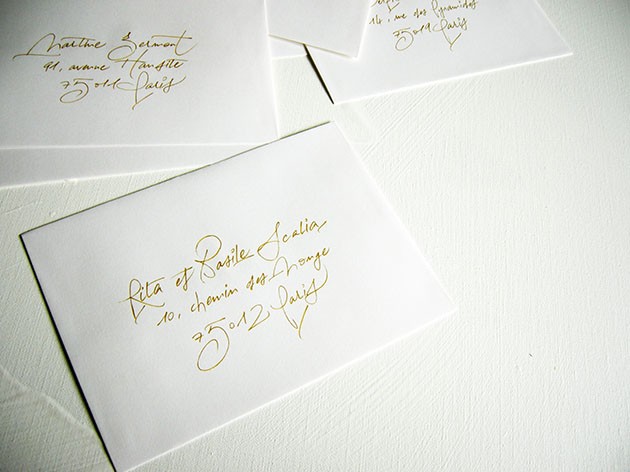 Martine Germont
91, avenue
75011 Paris
16, rue des Pyramides
75019 Paris
Rita et Basile Scalia
10, chemin des
75012 Paris